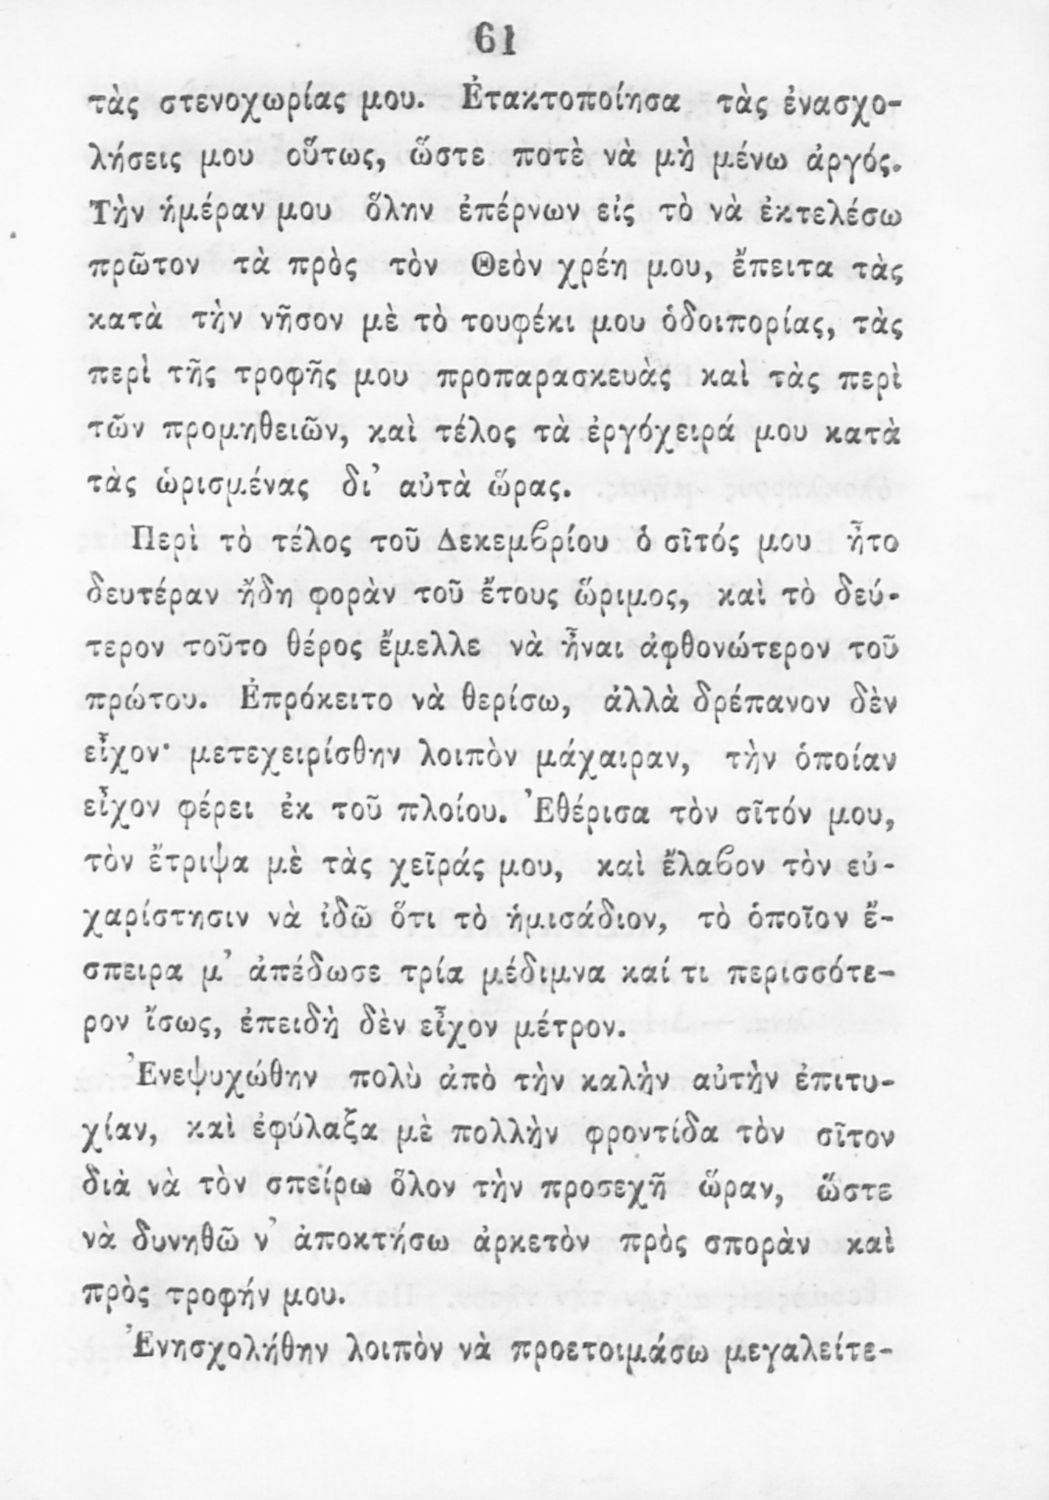 61
τὰς στενοχωρίας μου. Ἐτακτοποίησα τὰς ἐνασχο-
λήσεις μου οὕτως, ὥστε ποτὲ νὰ μὴ μένω ἀργός.
Τὴν ἡμέραν μου ὅλην ἐπέρνων εἰς τὸ νὰ ἐκτελέσω
πρῶτον τὰ πρὸς τὸν Θεὸν χρέη μου, ἔπειτα τὰς
κατὰ τὴν νῆσον μὲ τὸ τουφέκι μου ὁδοιπορίας, τὰς
περὶ τῆς τροφῆς μου προπαρασκευὰς καὶ τὰς περὶ
τῶν προμηθειῶν, καὶ τέλος τὰ ἐργόχειρά μου κατὰ
τὰς ὡρισμένας δι᾽ αὐτὰ ὥρας.
Περὶ τὸ τέλος τοῦ Δεκεμϐρίου ὁ σῖτός μου ἦτο
δευτέραν ἤδη φορὰν τοῦ ἔτους ὥριμος, καὶ τὸ δεύ-
τερον τοῦτο θέρος ἔμελλε νὰ ἦναι ἀφθονώτερον τοῦ
πρώτου. Ἐπρόκειτο νὰ θερίσω, ἀλλὰ δρέπανον δὲν
εἶχον· μετεχειρίσθην λοιπὸν μάχαιραν, τὴν ὁποίαν
εἶχον φέρει ἐκ τοῦ πλοίου. Ἐθέρισα τὸν σῖτόν μου,
τὸν ἔτριψα μὲ τὰς χεῖράς μου, καὶ ἔλαϐον τὸν εὐ-
χαρίστησιν νὰ ἰδῶ ὅτι τὸ ἡμισάδιον, τὸ ὁποῖον ἔ-
σπειρα μ᾽ ἀπέδωσε τρία μέδιμνα καί τι περισσότε-
ρον ἴσως, ἐπειδὴ δὲν εἶχον μέτρον.
Ἐνεψυχώθην πολὺ ἀπὸ τὴν καλὴν αὐτὴν ἐπιτυ-
χίαν, καὶ ἐφύλαξα μὲ πολλὴν φροντίδα τὸν σῖτον
διὰ νὰ τὸν σπείρω ὅλον τὴν προσεχῆ ὥραν, ὥστε
νὰ δυνηθῶ ν᾽ ἀποκτήσω ἀρκετὸν πρὸς σπορὰν καὶ
πρὸς τροφήν μου.
Ἐνησχολήθην λοιπὸν νὰ προετοιμάσω μεγαλείτε-